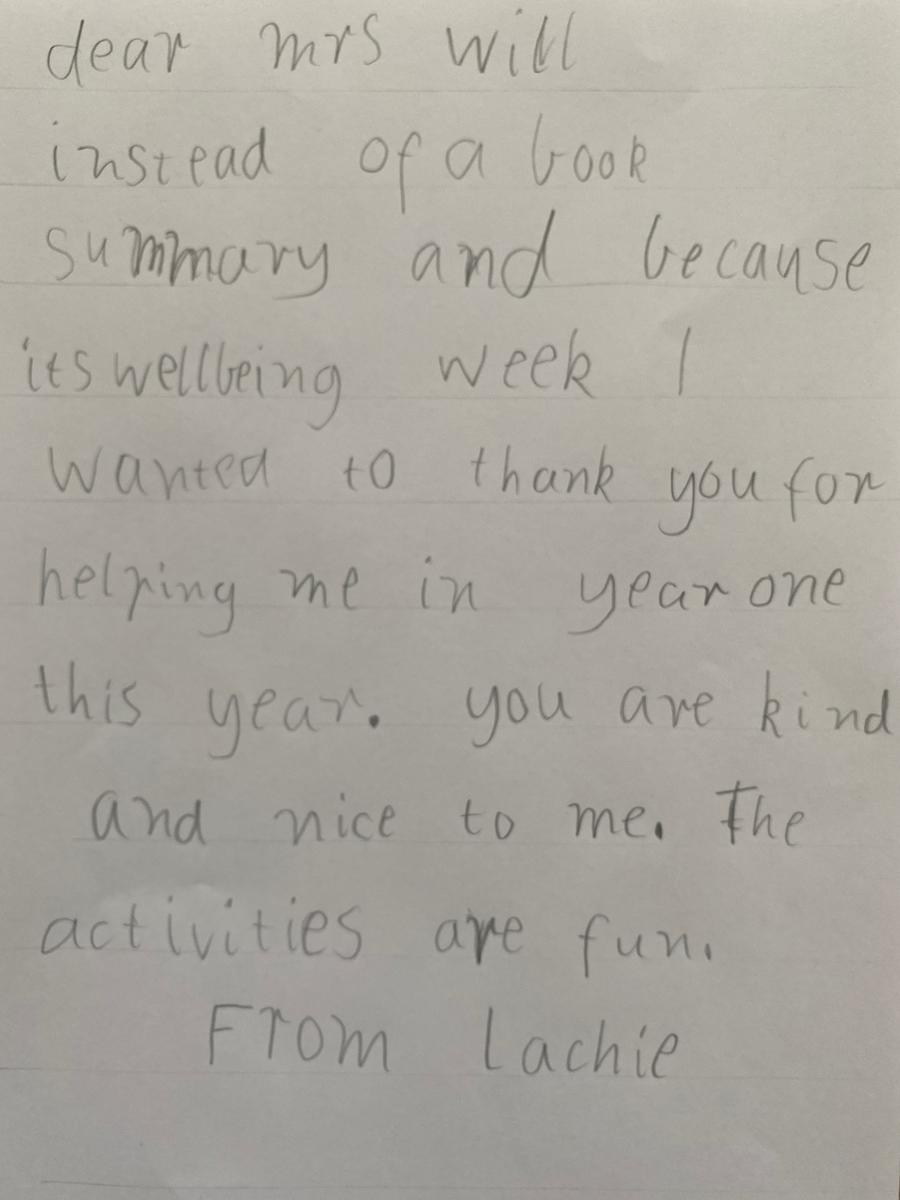 dear mrs will
instead of a book
summary and because
its wellbeing week I
wanted to thank you for
helping me in year one
this year. you are kind
and nice to me. The
activities are fun.
From Lachie